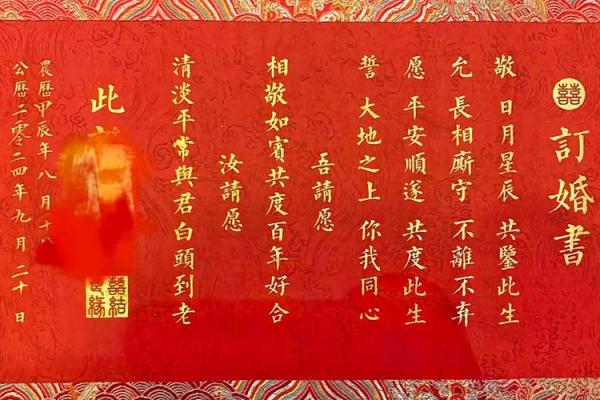 囍
訂婚書
敬 日月星辰 共鑒此生
允 長相廝守 不離不弃
愿 平安順遂 共度此生
誓 大地之上 你我同心
吾請愿
相敬如賓共度百年好合
汝請愿
清淡平常與君白頭到老
此
囍結
缘
農歷甲辰年八月十八
公歷二零二四年九月二十日